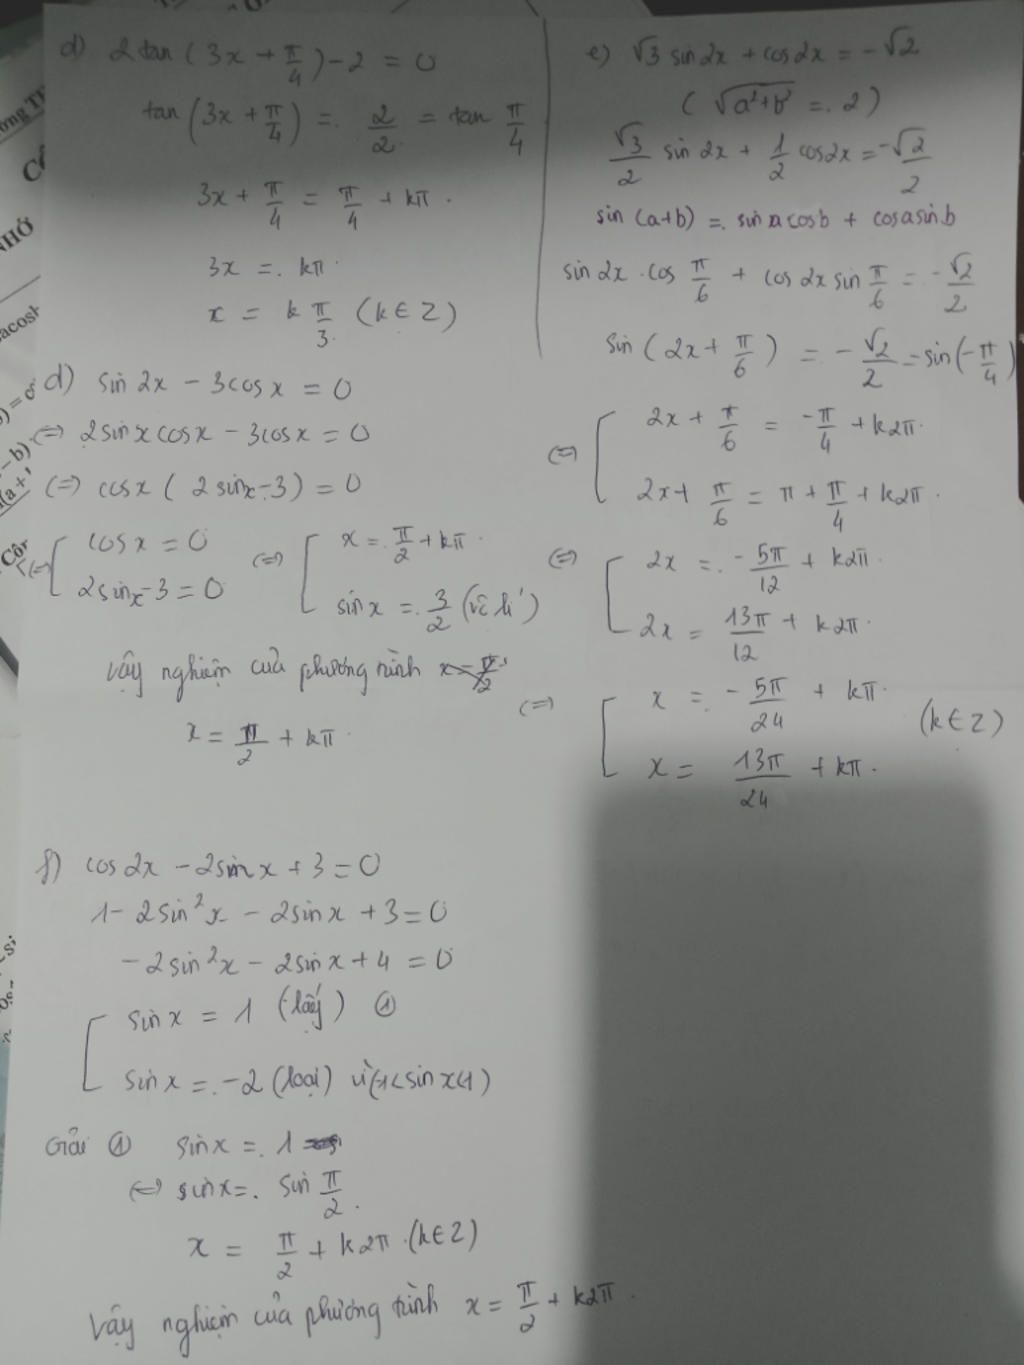 d) 2tan(3x + π/4) - 2 = 0
tan(3x + π/4) = 2/2 = tan π/4
3x + π/4 = π/4 + kπ.
3x = kπ.
x = k π/3 (k∈Z)
d) sin 2x - 3cos x = 0
(=) 2sin x cos x - 3cos x = 0
(=) cos x ( 2sin x - 3) = 0
(=) [ cos x = 0 (=) [ x = π/2 + kπ.
2sin x - 3 = 0 sin x = 3/2 (vô lí)
Vậy nghiệm của phương trình
x = π/2 + kπ.
e) √3 sin 2x + cos 2x = -√2
( √a²+b² = 2 )
√3/2 sin 2x + 1/2 cos 2x = -√2/2
sin (a+b) = sin a cos b + cos a sin b
sin 2x . cos π/6 + cos 2x sin π/6 = -√2/2
sin ( 2x + π/6 ) = -√2/2 = sin(-π/4)
(=) [ 2x + π/6 = -π/4 + k2π.
2x + π/6 = π + π/4 + k2π.
(=) [ 2x = -5π/12 + k2π.
2x = 13π/12 + k2π.
(=) [ x = -5π/24 + kπ. (k∈Z)
x = 13π/24 + kπ.
f) cos 2x - 2sin x + 3 = 0
1 - 2sin²x - 2sin x + 3 = 0
-2sin²x - 2sin x + 4 = 0
[ sin x = 1 (lấy) ①
sin x = -2 (loại) vì (-1<sin x<1)
Giải ① sin x = 1
(=) sin x = sin π/2.
x = π/2 + k2π. (k∈Z)
Vậy nghiệm của phương trình x = π/2 + k2π.
NHỚ